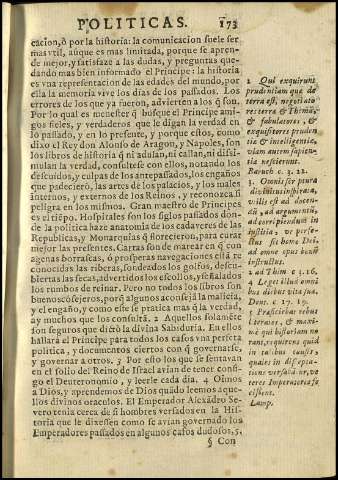 POLITICAS. 173
cacion, ò por la historia: la comunicacion suele ser
mas vtil, aũque es mas limitada, porque se apren-
de mejor, y satisfaze a las dudas, y preguntas que-
dando mas bien informado el Principe: la historia
es vna representacion de las edades del mundo, por
ella la memoria vive los dias de los passados. Los
errores de los que ya fueron, advierten a los q̃ son.
Por lo qual es menester q̃ busque el Principe ami-
gos fieles, y verdaderos que le digan la verdad en
lo passado, y en lo presente, y porque estos, como
dixo el Rey don Alonso de Aragon, y Napoles, son
los libros de historia q̃ ni adulan, ni callan, ni dissi-
mulan la verdad, consultese con ellos, notando los
descuidos, y culpas de los antepassados, los engaños
que padecierõ, las artes de los palacios, y los males
internos, y externos de los Reinos, y reconozca si
peligra en los mismos. Gran maestro de Principes
es el tiẽpo. Hospitales son los siglos passados don-
de la politica haze anatomia de los cadaveres de las
Republicas, y Monarquias q̃ florecieron, para curar
mejor las presentes. Cartas son de marear en q̃ con
agenas borrascas, ò prosperas navegaciones està re
conocidas las riberas, fondeados los golfos, descu-
biertas las secas, advertidos los escollos, y señalados
los rumbos de reinar. Pero no todos los libros son
buenos cõsejeros, porq̃ algunos aconsejã la malicia,
y el engaño, y como este se pratica mas q̃ la verdad,
ay muchos que los consultã. 2 Aquellos solamẽte
son seguros que dictò la divina Sabiduria. En ellos
hallarà el Principe para todos los casos vna perfeta
politica, y documentos ciertos con q̃ governarse,
y governar a otros. 3 Por esto los que se sentavan
en el solio del Reino de Israel avian de tener consi-
go el Deuteronomio, y leerle cada dia. 4 Oimos
a Dios, y aprendemos de Dios quãdo leemos aque-
llos divinos oraculos. El Emperador Alexãdro Se-
vero tenia cerca de si hombres versados en la His-
toria que le dixessen como se avian governado los
Emperadores passados en algunos casos dudosos, 5.
§ Con
2 Qui exquirunt
prudentiam quæ de
terra est, negotiato
res terræ & Themã,
& fabulatores, &
exquisitores pruden
tiæ & intelligentiæ,
viam autem sapien-
tiæ nescierunt.
Baruch c. 3. 22.
3. Omnis scriptura
divinitus inspirata,
vtilis est ad docen-
dũ, ad arguentũ,
ad corripiendũ in
iustitia, vt perfe-
ctus sit homo Dei,
ad omne opus bonũ
instructus.
2 ad Thim c 3. 16.
4 Leget illud omni
bus diebus vitæ suæ.
Deut. c 17. 19.
5 Præficiebat rebus
litteratos, & maxi-
mè qui historiam no
rant, requirens quid
in talibus causis
quales in discepta-
tione versabãtur, ve
teres Imperatores fe
cissent.
Lamp.